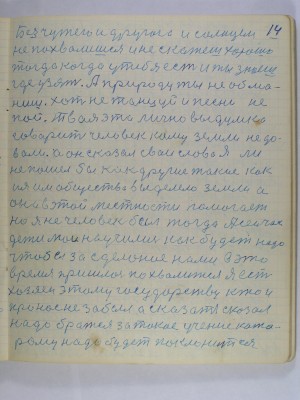 14
Без чужого и другого и солнцем
не похвалишся и не скажеш хорошо
тогда когда у тибя ест и ты знаеш
где узят. А природу ты не обма-
ниш. хот не танцуй и песни не
пой. Твая эта лично выдумка
говорит человек кому земли не до-
вали. а он сказал сваи слова Я ли
не пошел бы как другие такое как
им общества выделело земла и
она в этой местности помогает
но я не человек был тогда А сечас
дети мои научилис как будет надо
чтобы за сделоное нами в это
время пришлос похвалится Я ест
хозяен этому государству кто и
про нос не забыл а сказат сказал
надо братся за такое учение кото-
рому надо будет поклонится